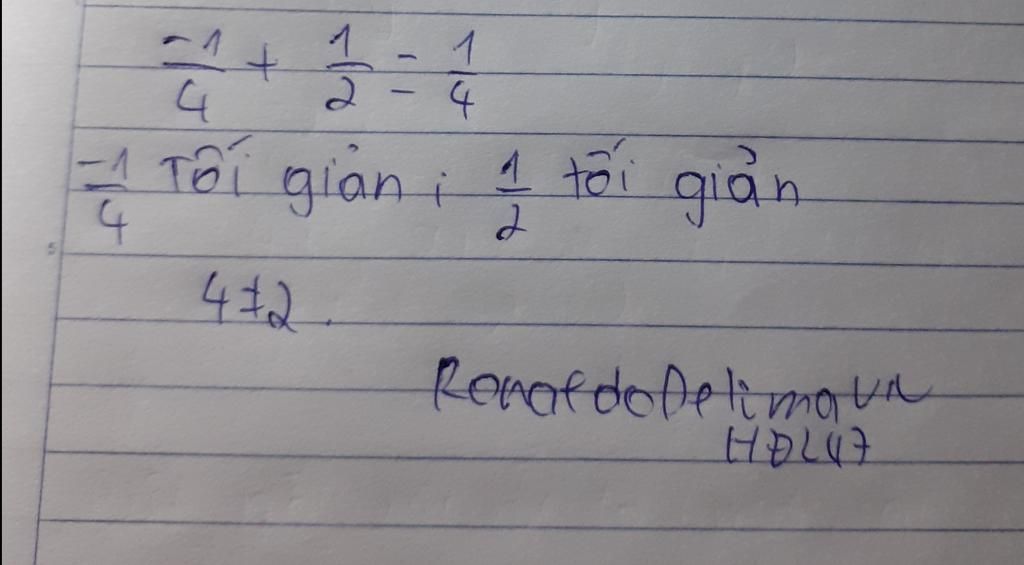 -1/4 + 1/2 = 1/4
-1/4 Tối giản ; 1/2 tối giản
4≠2.
RonaldoDelimaVN
HĐL47